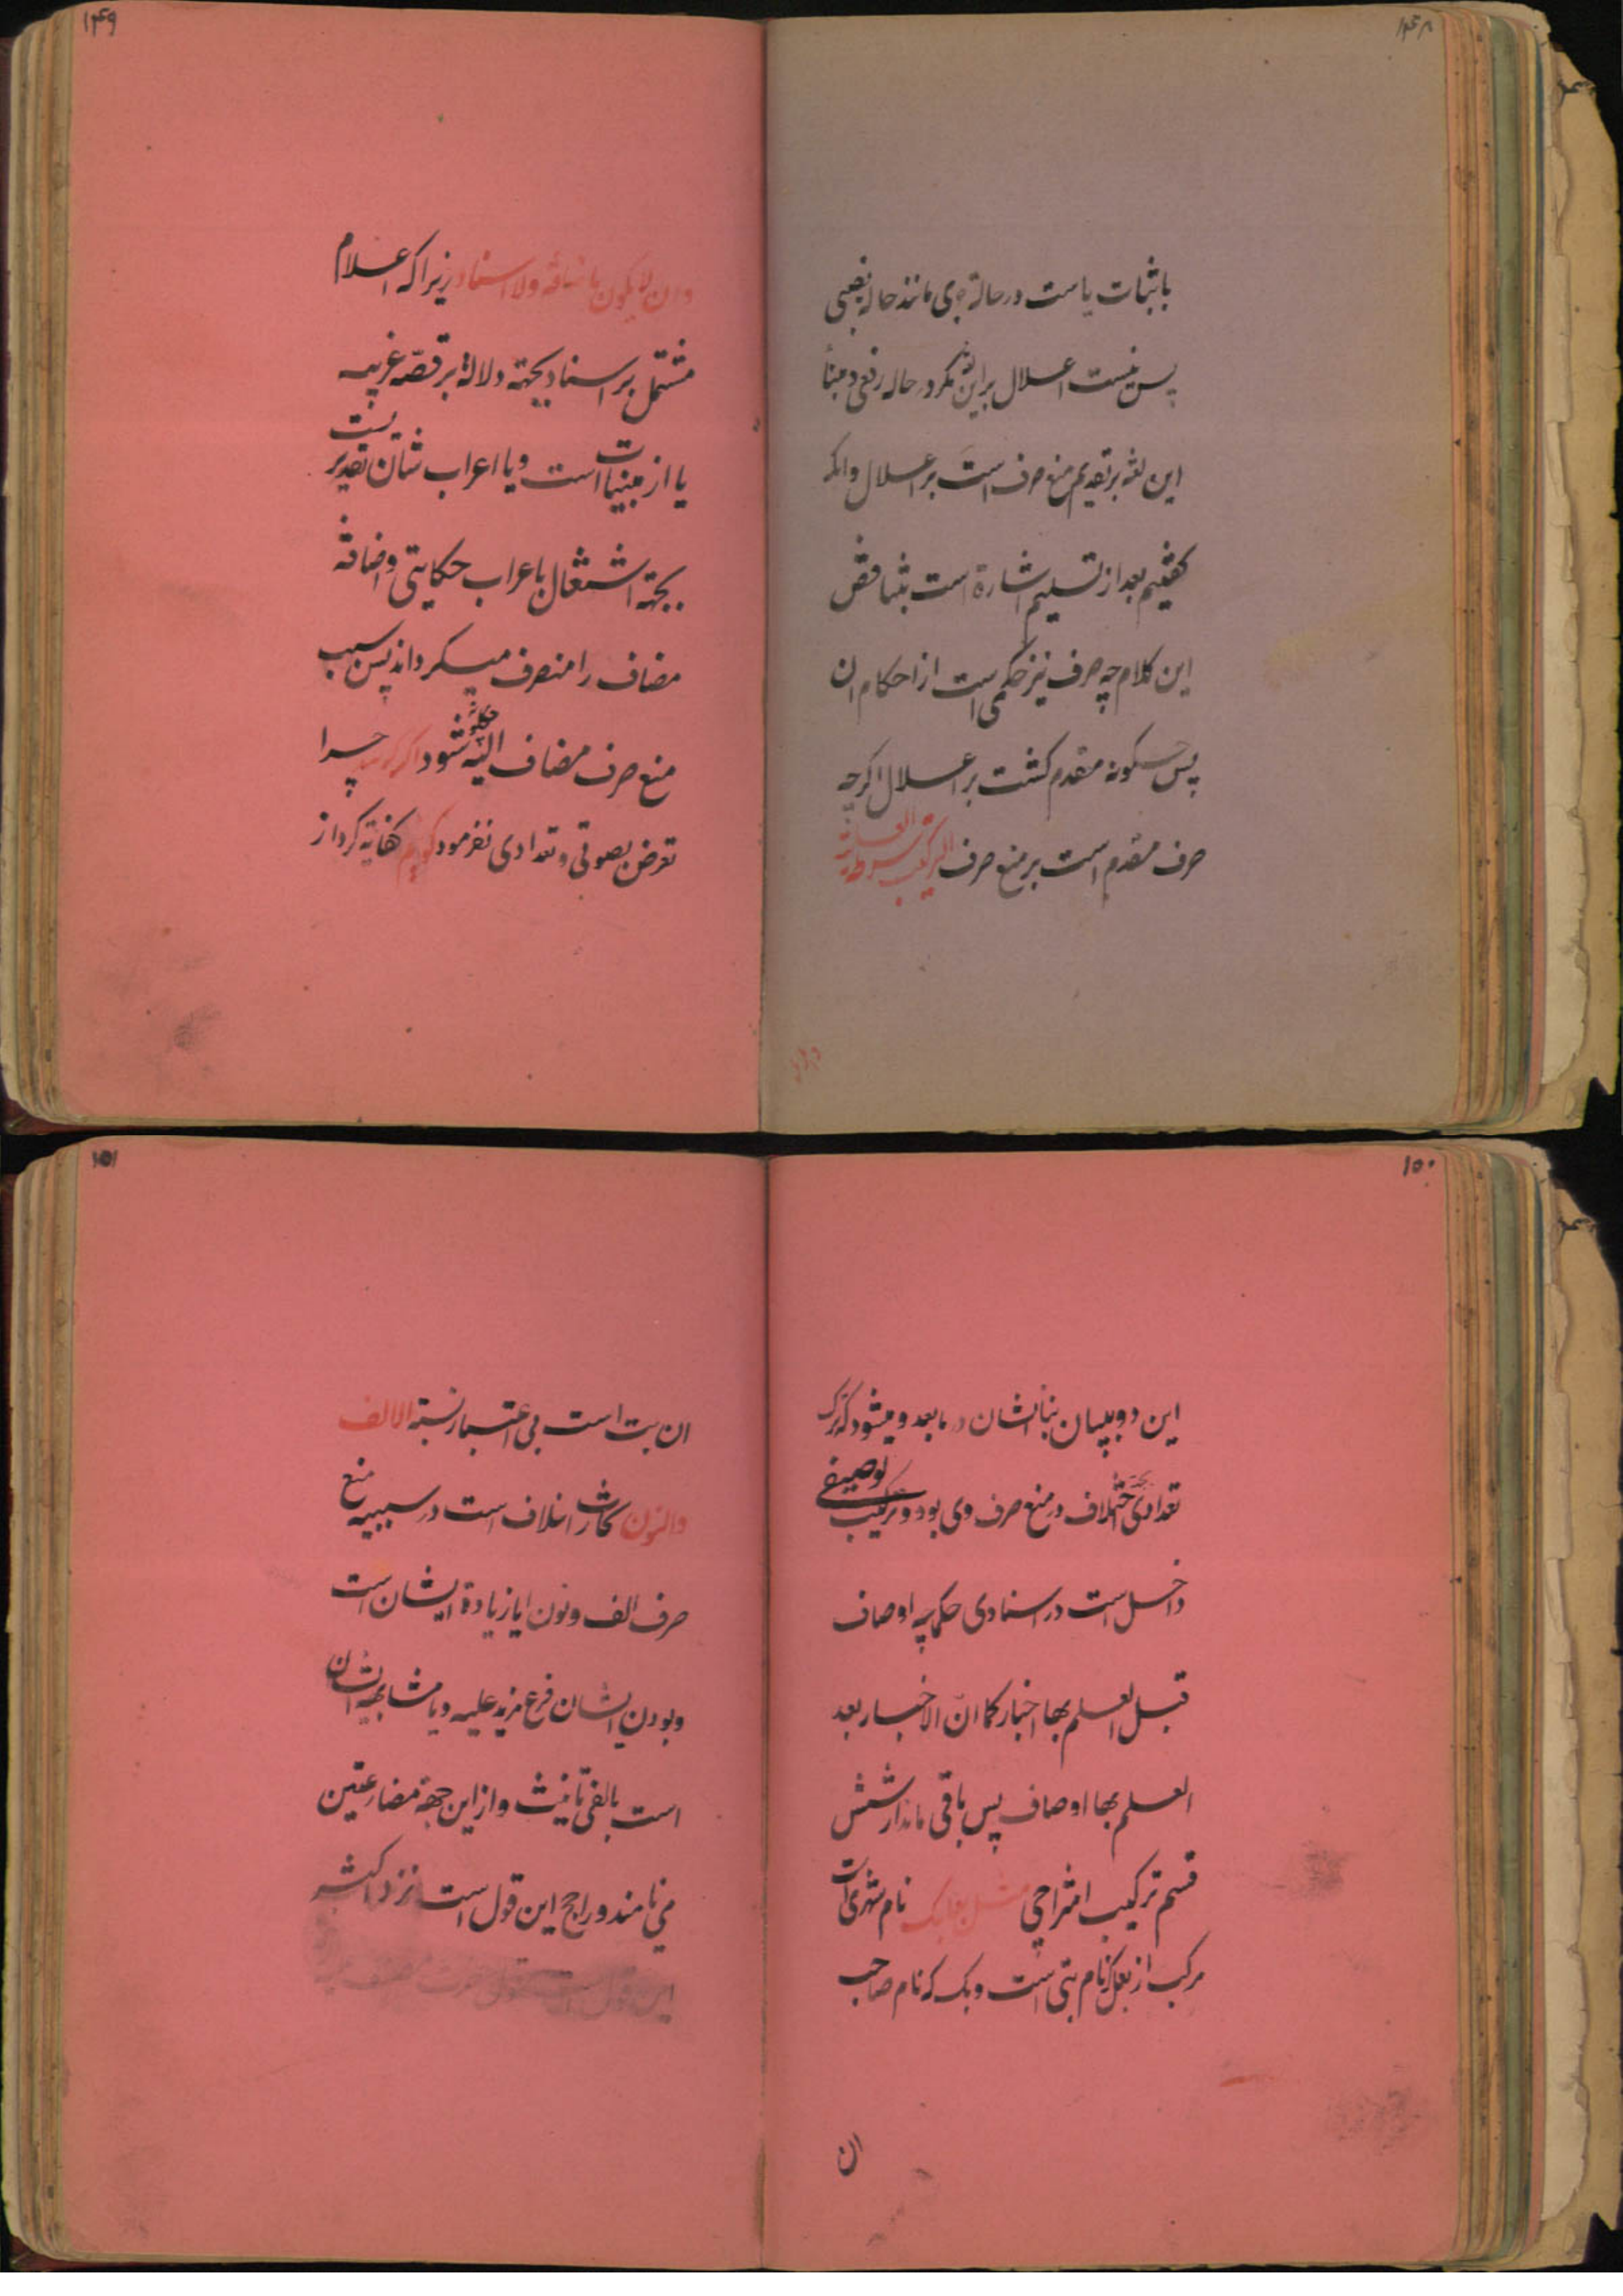 ۱۴۸
باثبات یاست در حالة جری مانند حاله نصبی
پس نیست اعلال براین لغة مکر در حاله رفعی و مبنأ
این لغة بر تقدیم منع صرف است بر اعلال وانکه
کفتیم بعد از تسلیم اشارة است بتناقض
این کلام چه صرف نیز حکمی است از احکام ان
پس چکونه مقدم کشت بر اعلال اکرچه
صرف مقدم است بر منع صرف الترکیب شرطه العلمیة
وان لا
۱۴۹
وان لا یکون باضافة ولا اسناد زیرا که اعلام
مشتمل بر اسناد بجهته دلالة بر قصّه غریبه
یا از مبنیات است ویا اعراب شان تقدیریست
بجهته اشتغال باعراب حکایتی واضافة
مضاف را منصرف میکرداند پس سبب
منع صرف مضاف الیه چکونه شود اکر کوئید چرا
تعرض بصوتی و تعدادی نفرمود کویم کفایة کرد از
۱۵۰
این دو ببیان بنأ ایشان در مابعد و میشود که ترک
تعدادی بجهة اختلاف در منع صرف وی بود و ترکیب توصیفی
داخل است در اسنادی حکما چه اوصاف
قبل العلم بها اخبار کما انّ الاخبار بعد
العلم بها اوصاف پس باقی ماند از شش
قسم ترکیب امتزاجی مثل بعلبک نام شهری است
مرکب از بعل که نام بتی است و بک که نام صاحب
ان
۱۵۱
ان بت است بی اعتبار نسبة الالف
والنون کاشارا خلاف است در سببیه منع
صرف الف ونون ایا زیادة ایشان است
وبودن ایشان فرع مزید علیه ویا مشابهة ایشان
است بالفی تانیث واز این جهة مضارعتین
می نامند وراجح این قول است نزد اکثر